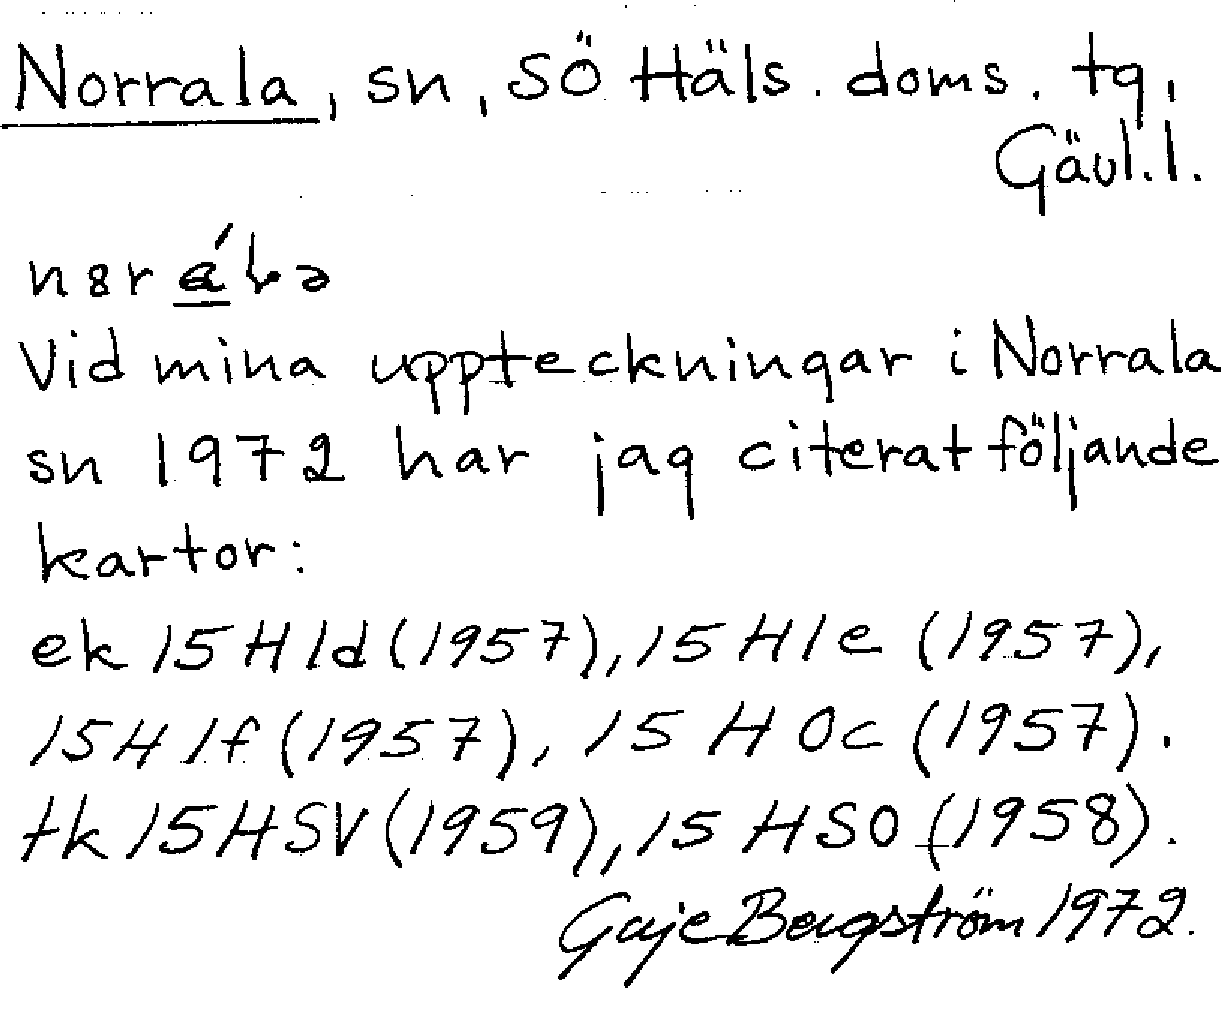 Norrala, sn, SÖ Häls. doms. tg,
Gävl.l.
Vid mina uppteckningar i Norrala
sn 1972 har jag citerat följande
kartor:
ek 15 H 1d (1957), 15 H 1e (1957),
15 H 1f (1957), 15 H 0c (1957).
tk 15 H SV (1959), 15 H SO (1958).
Bergström 1972.